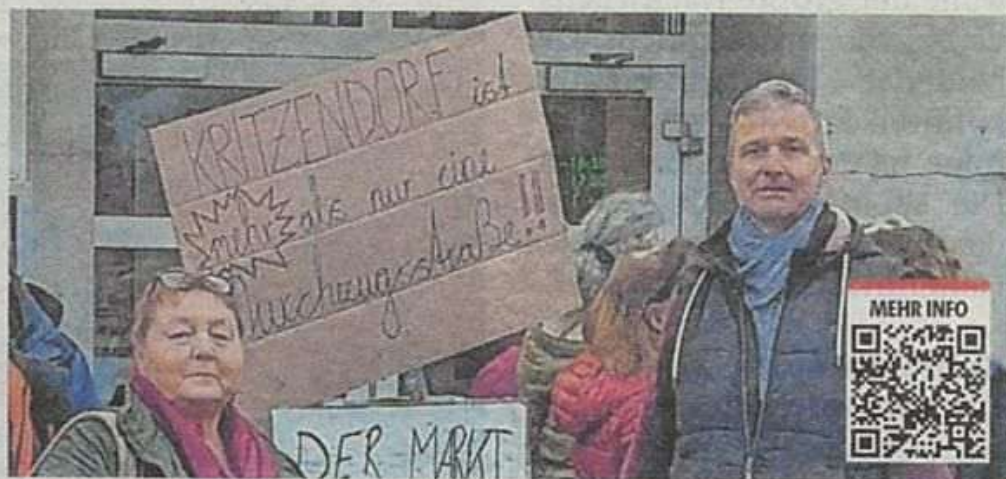 KRITZENDORF ist
mehr als nur eine
Durchzugsstraße!!
DER MARKT
MEHR INFO